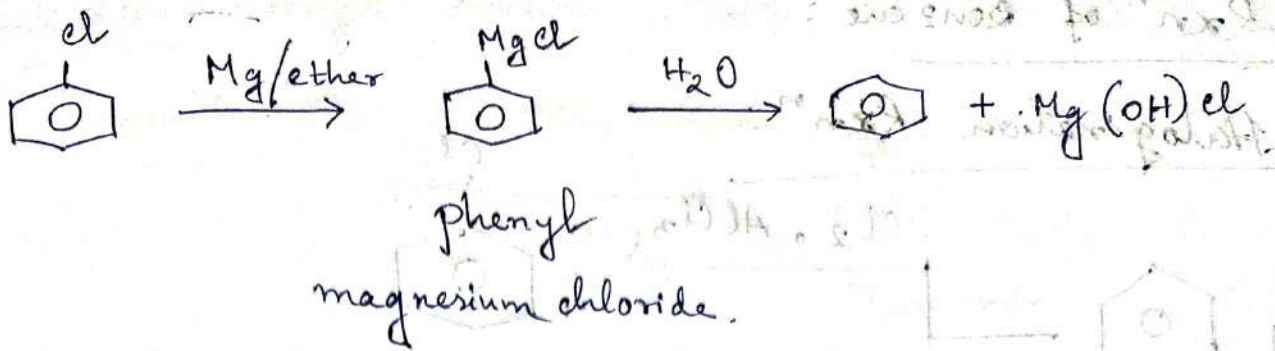 Cl MgCl
Mg/ether H₂O + Mg(OH)Cl
phenyl
magnesium chloride.